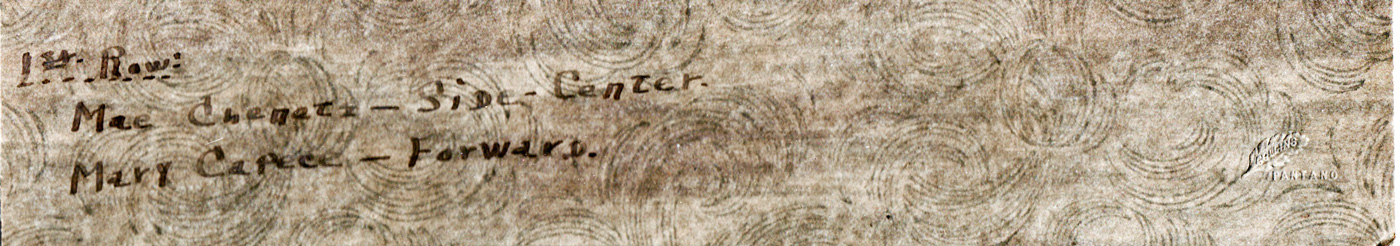 1st. Row:
Mae Chepetz – Side-Center.
Mary Capece – Forward.
PANTANO